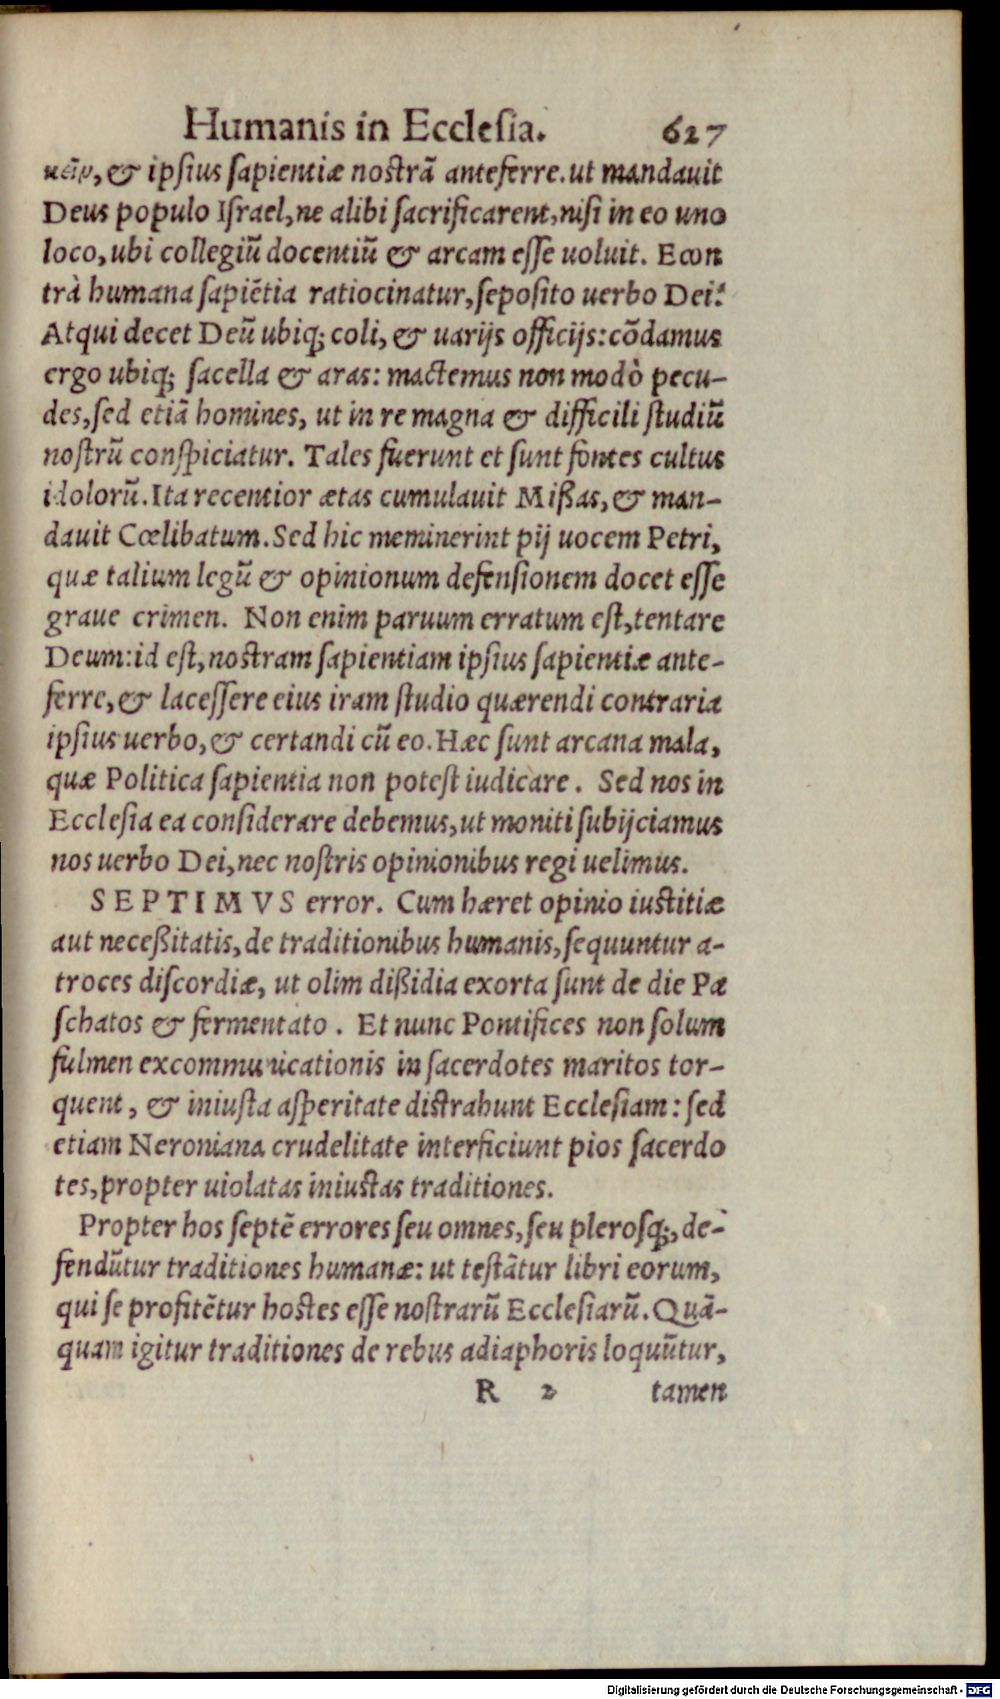 Humanis in Ecclesia. 627
& ipsius sapientiæ nostrã anteferre. ut mandauit
Deus populo Israel, ne alibi sacrificarent, nisi in eo uno
loco, ubi collegiũ docentiũ & arcam esse uoluit. Econ
trà humana sapiẽtia ratiocinatur, seposito uerbo Dei:
Atqui decet Deũ ubiq; coli, & uarijs officijs: cõdamus
ergo ubiq; sacella & aras: mactemus non modò pecu-
des, sed etiã homines, ut in re magna & difficili studiũ
nostrũ conspiciatur. Tales fuerunt et sunt fontes cultus
idolorũ. Ita recentior ætas cumulauit Mißas, & man-
dauit Cœlibatum. Sed hic meminerint pij uocem Petri,
quæ talium legũ & opinionum defensionem docet esse
graue crimen. Non enim paruum erratum est, tentare
Deum: id est, nostram sapientiam ipsius sapientiæ ante-
ferre, & lacessere eius iram studio quærendi contraria
ipsius uerbo, & certandi cũ eo. Hæc sunt arcana mala,
quæ Politica sapientia non potest iudicare. Sed nos in
Ecclesia ea considerare debemus, ut moniti subijciamus
nos uerbo Dei, nec nostris opinionibus regi uelimus.
SEPTIMVS error. Cum hæret opinio iustitiæ
aut neceßitatis, de traditionibus humanis, sequuntur a-
troces discordiæ, ut olim dißidia exorta sunt de die Pæ
schatos & fermentato. Et nunc Pontifices non solum
fulmen excommunicationis in sacerdotes maritos tor-
quent, & iniusta asperitate distrahunt Ecclesiam: sed
etiam Neroniana crudelitate interficiunt pios sacerdo
tes, propter uiolatas iniustas traditiones.
Propter hos septẽ errores seu omnes, seu plerosq;, de-
fendũtur traditiones humanæ: ut testãtur libri eorum,
qui se profitẽtur hostes esse nostrarũ Ecclesiarũ. Quã-
quam igitur traditiones de rebus adiaphoris loquũtur,
R 2 tamen
Digitalisierung gefördert durch die Deutsche Forschungsgemeinschaft - DFG